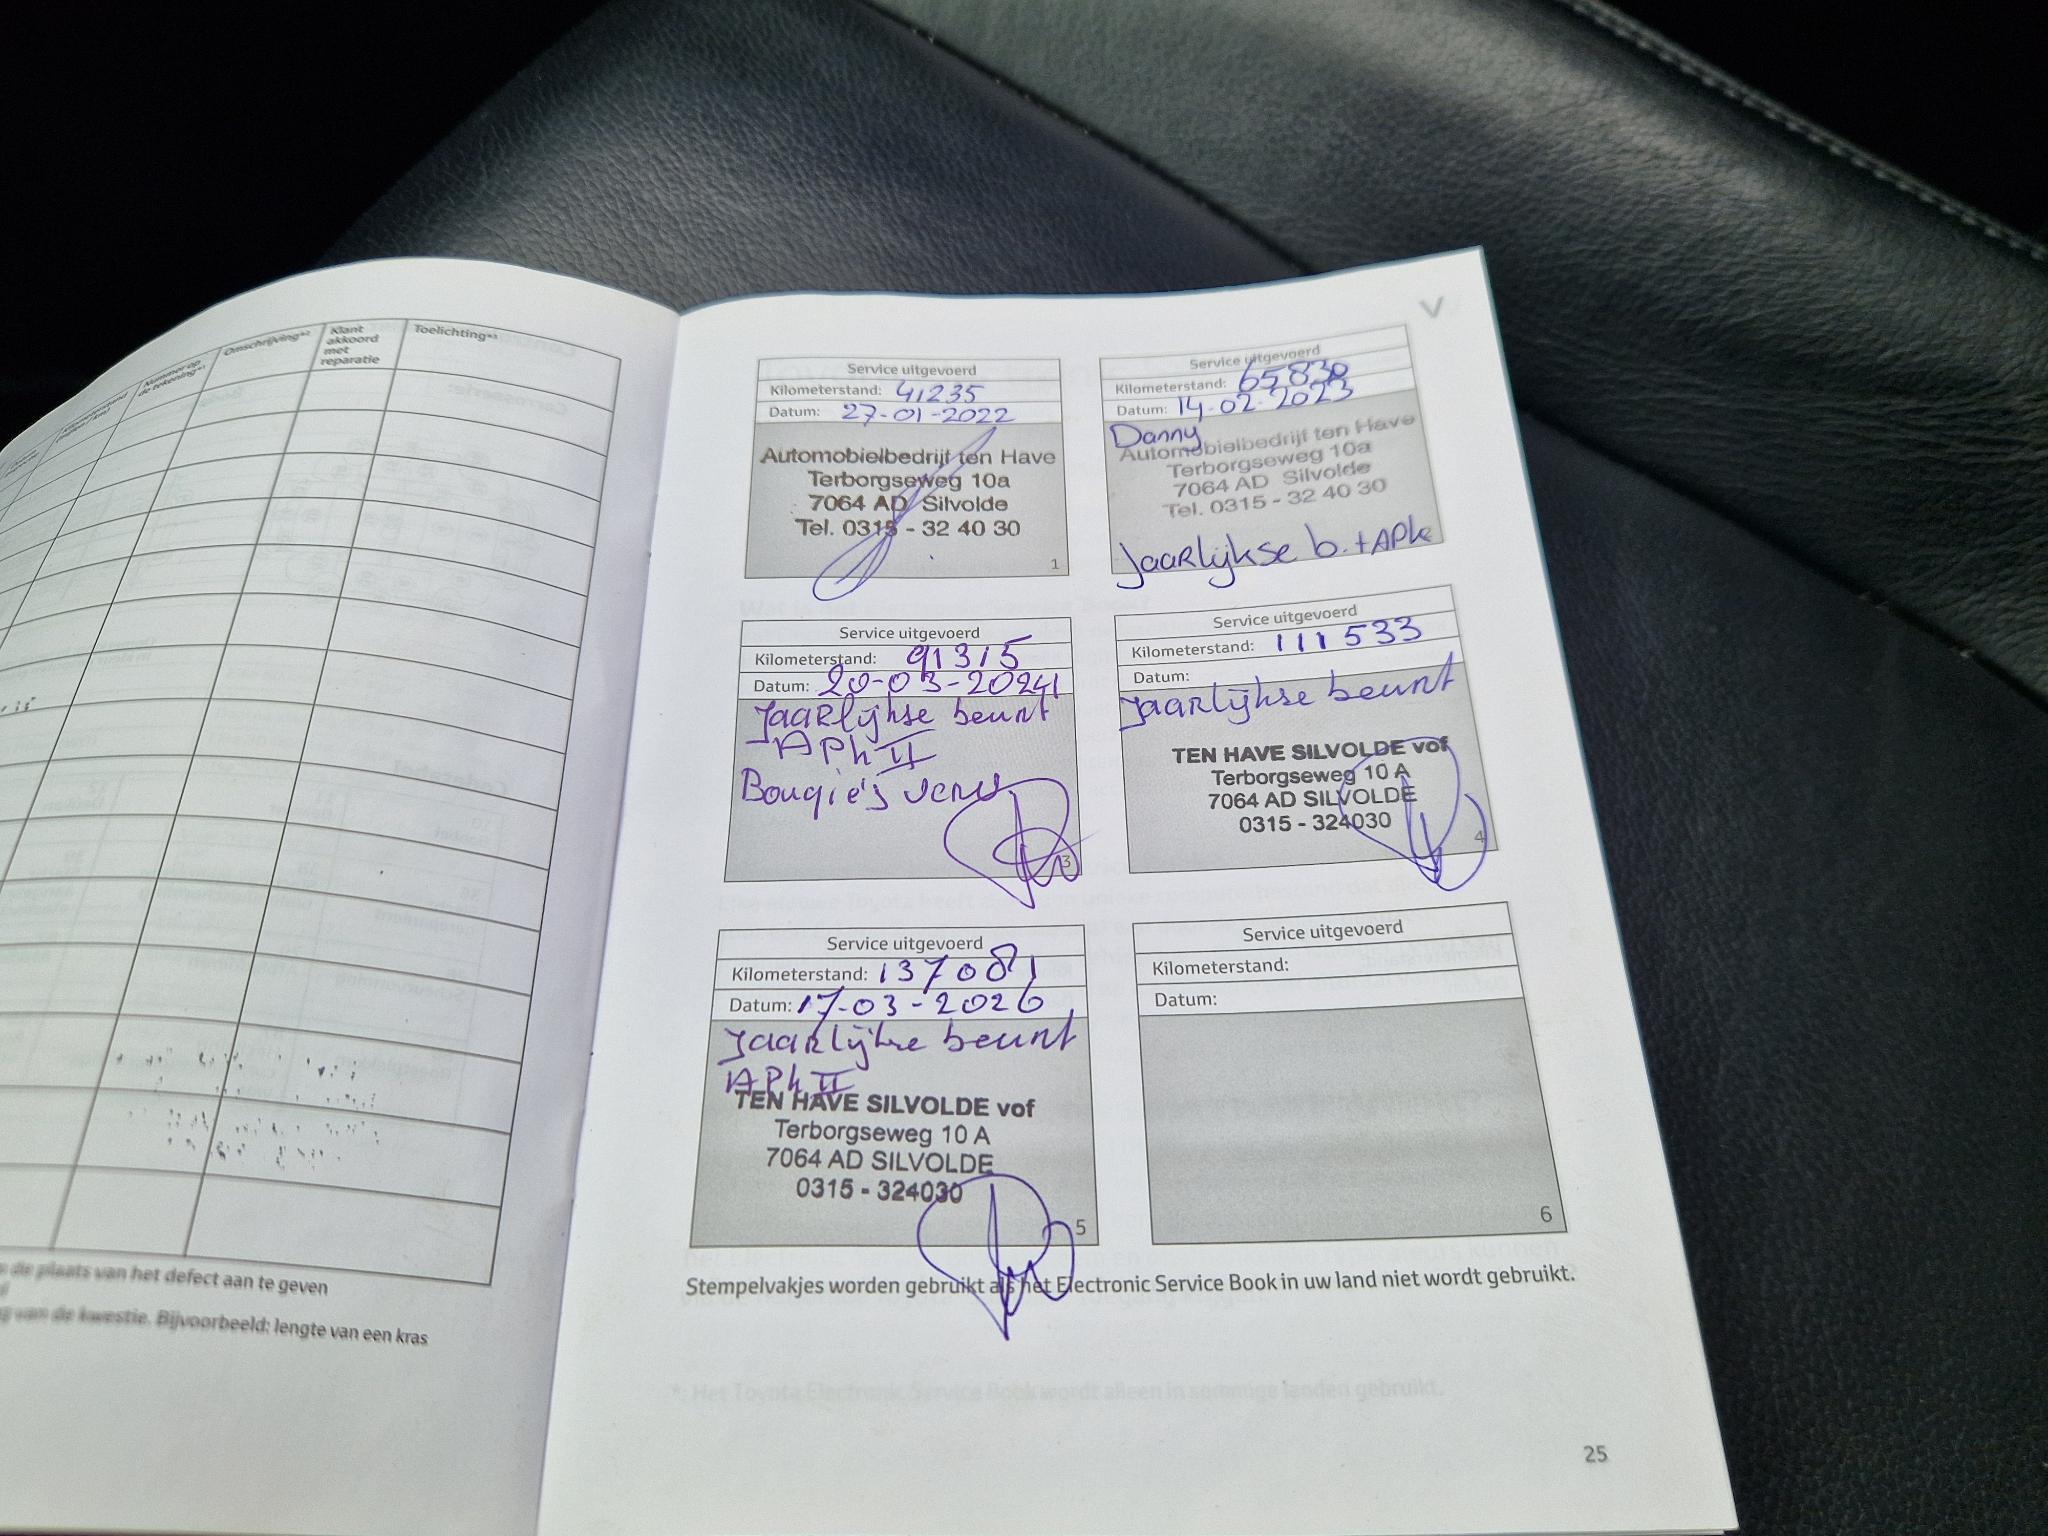 Nummer op de tekening*¹
Omschrijving*²
Klant
akkoord
met
reparatie
Toelichting*³
de plaats van het defect aan te geven
van de kwestie. Bijvoorbeeld: lengte van een kras
V
Service uitgevoerd
Kilometerstand: 41235
Datum: 27-01-2022
Automobielbedrijf ten Have
Terborgseweg 10a
7064 AD Silvolde
Tel. 0315 - 32 40 30
1
Service uitgevoerd
Kilometerstand: 65830
Datum: 14-02-2023
Danny
Automobielbedrijf ten Have
Terborgseweg 10a
7064 AD Silvolde
Tel. 0315 - 32 40 30
Jaarlijkse b. + APk
Service uitgevoerd
Kilometerstand: 91315
Datum: 20-03-2024
Jaarlijkse beurt
APk II
Bougie's
3
Service uitgevoerd
Kilometerstand: 111533
Datum:
Jaarlijkse beurt
TEN HAVE SILVOLDE vof
Terborgseweg 10 A
7064 AD SILVOLDE
0315 - 324030
4
Service uitgevoerd
Kilometerstand: 137081
Datum: 17-03-2026
Jaarlijkse beurt
APk II
TEN HAVE SILVOLDE vof
Terborgseweg 10 A
7064 AD SILVOLDE
0315 - 324030
5
Service uitgevoerd
Kilometerstand:
Datum:
6
Stempelvakjes worden gebruikt als het Electronic Service Book in uw land niet wordt gebruikt.
*: Het Toyota Electronic Service Book wordt alleen in sommige landen gebruikt.
25